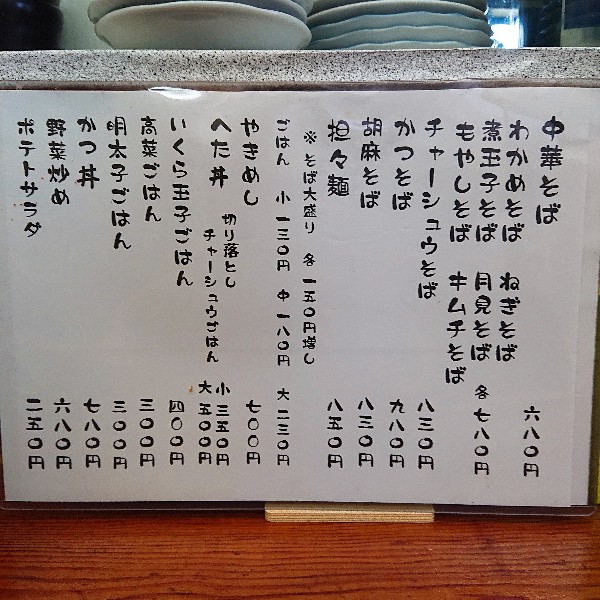 中華そば 六八〇円
わかめそば ねぎそば
煮玉子そば 月見そば 各 七八〇円
もやしそば キムチそば
チャーシュウそば 八三〇円
かつそば 九八〇円
胡麻そば 八三〇円
担々麺 八五〇円
※そば大盛り 各 一五〇円増し
ごはん 小 一三〇円 中 一八〇円 大 二三〇円
やきめし 七〇〇円
へた丼 切り落としチャーシュウごはん 小 三五〇円 大 五〇〇円
いくら玉子ごはん 四〇〇円
高菜ごはん 三〇〇円
明太子ごはん 三〇〇円
かつ丼 七八〇円
野菜炒め 六八〇円
ポテトサラダ 二五〇円